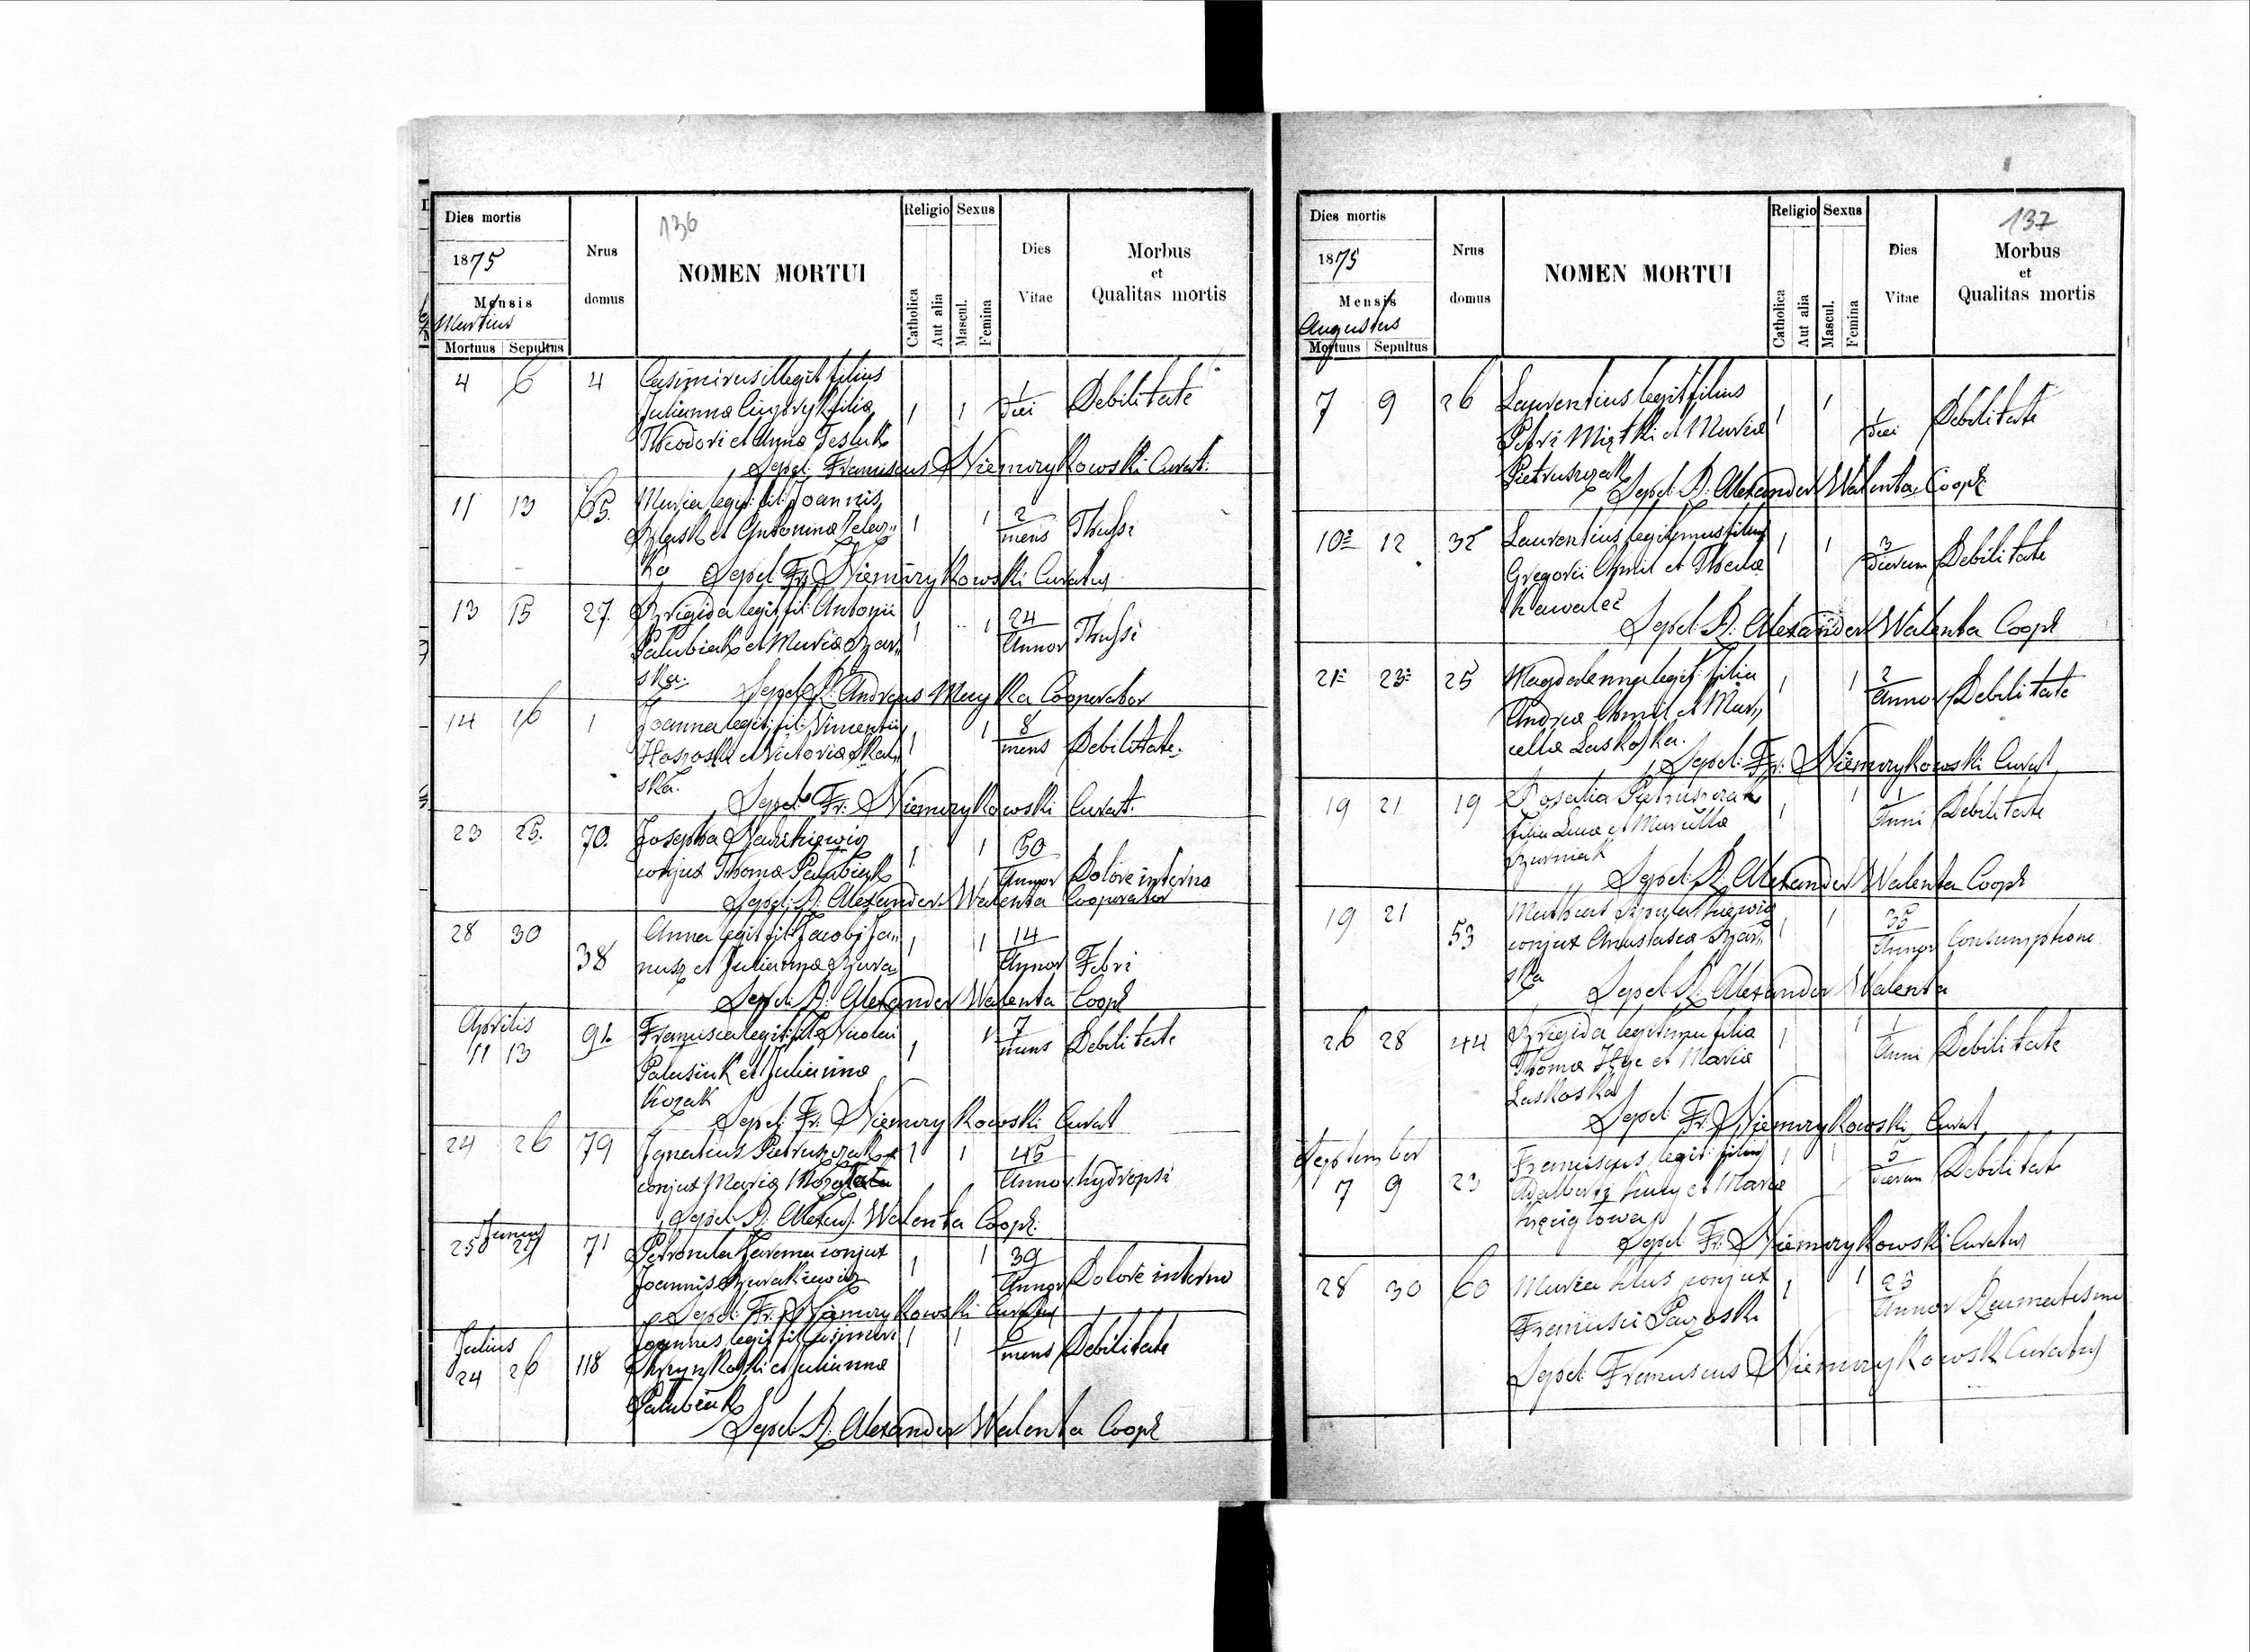 Dies mortis
1875
Mensis
Martius
Mortuus Sepultus
Nrus domus
136
NOMEN MORTUI
Religio Sexus
Catholica
Aut alia
Mascul.
Femina
Dies Vitae
Morbus
et
Qualitas mortis
4 6 4 Casimirus illegit filius
Julianna filia 1 1 1 diei Debilitate
Theodori et Anna Tesluk
Sepel: Franciscus Niemczykowski Curat:
11 13 65. Maria legit: fil: Joannis
et Antonina Zelaz„ 1 1 2 mens Thussi
ka Sepel Fr: Niemczykowski Curatus
13 15 27. Brigida legit fil: Antonii
Palubiak et Maria Szar„ 1 1 24 Annor Thussi
ska. Sepel D: Andreas Cooperator
14 16 1 Joanna legit: fil: Vincentii
et Victoria Skal„ 1 1 8 mens Debilitate.
ska.
Sepel Fr: Niemczykowski Curat.
23 25. 70. Josepha
conjux Thoma Palubiak 1 1 50 Annor Dolore interno
Sepel: D: Alexander Walenta Cooperator
28 30 38 Anna legit fil: Jacobi Ja„ 1 1 14
nusz et Julianna Annor Febri
Sepel: D: Alexander Walenta Coop
Aprilis
11 13 91. Francisca legit: fil: Nicolai 1 7 mens Debilitate
Palusiuk et Julianna 1
Kozak
Sepel: Fr: Niemczykowski Curat
24 26 79 Ignatius Pietruszak 1 1 45
conjux Maria Annor. hydropsi
Sepel: D: Alexan. Walenta Coop:
Junius
25 27 71 Petronela conjux 1 1 39
Joannis Annor Dolore interno
Sepel: Fr: Niemczykowski Curatus
Julius
24 26 118 Joannes legit fil Casimiri 1 1 6 mens Debilitate
et Julianna
Palubiak
Sepel: D: Alexander Walenta Coop
Dies mortis
1875
Mensis
Augustus
Mortuus Sepultus
Nrus domus
NOMEN MORTUI
Religio Sexus
Catholica
Aut alia
Mascul.
Femina
Dies Vitae
137
Morbus
et
Qualitas mortis
7 9 26 Laurentius legit filius
Petri et Maria 1 1 1 diei Debilitate
Pietruszak
Sepel: D: Alexander Walenta Coop
10 12 32 Laurentius legitimus filius 1 1 3 dierum Debilitate
Gregorii Chmil et Thecla
Kawalec
Sepel: D: Alexander Walenta Coop
21 23 25 Magdalenna legit filia 1 1 2 Annor Debilitate
Andrea Chmil et Mar„
cella Laskoska.
Sepel: Fr: Niemczykowski Curat
19 21 19 Rosalia Pietruszak 1 1 1 Anni Debilitate
filia Luca et Marcella
Sepel: D: Alexander Walenta Coop
19 21 53 Matheus
conjux Anastasia Szar„ 1 1 35 Annor Consumptione
ska
Sepel: D: Alexander Walenta
26 28 44 Brigida legitima filia 1 1 1 Anni Debilitate
Thoma et Maria
Laskoska
Sepel: Fr: Niemczykowski Curat
September
7 9 23 Franciscus legit: filius 1 1 5 dierum Debilitate
Adalberti et Maria
Sepel Fr: Niemczykowski Curatus
28 30 60 Maria Klus conjux 1 1 23 Annor
Francisci
Sepel: Franciscus Niemczykowski Curatus